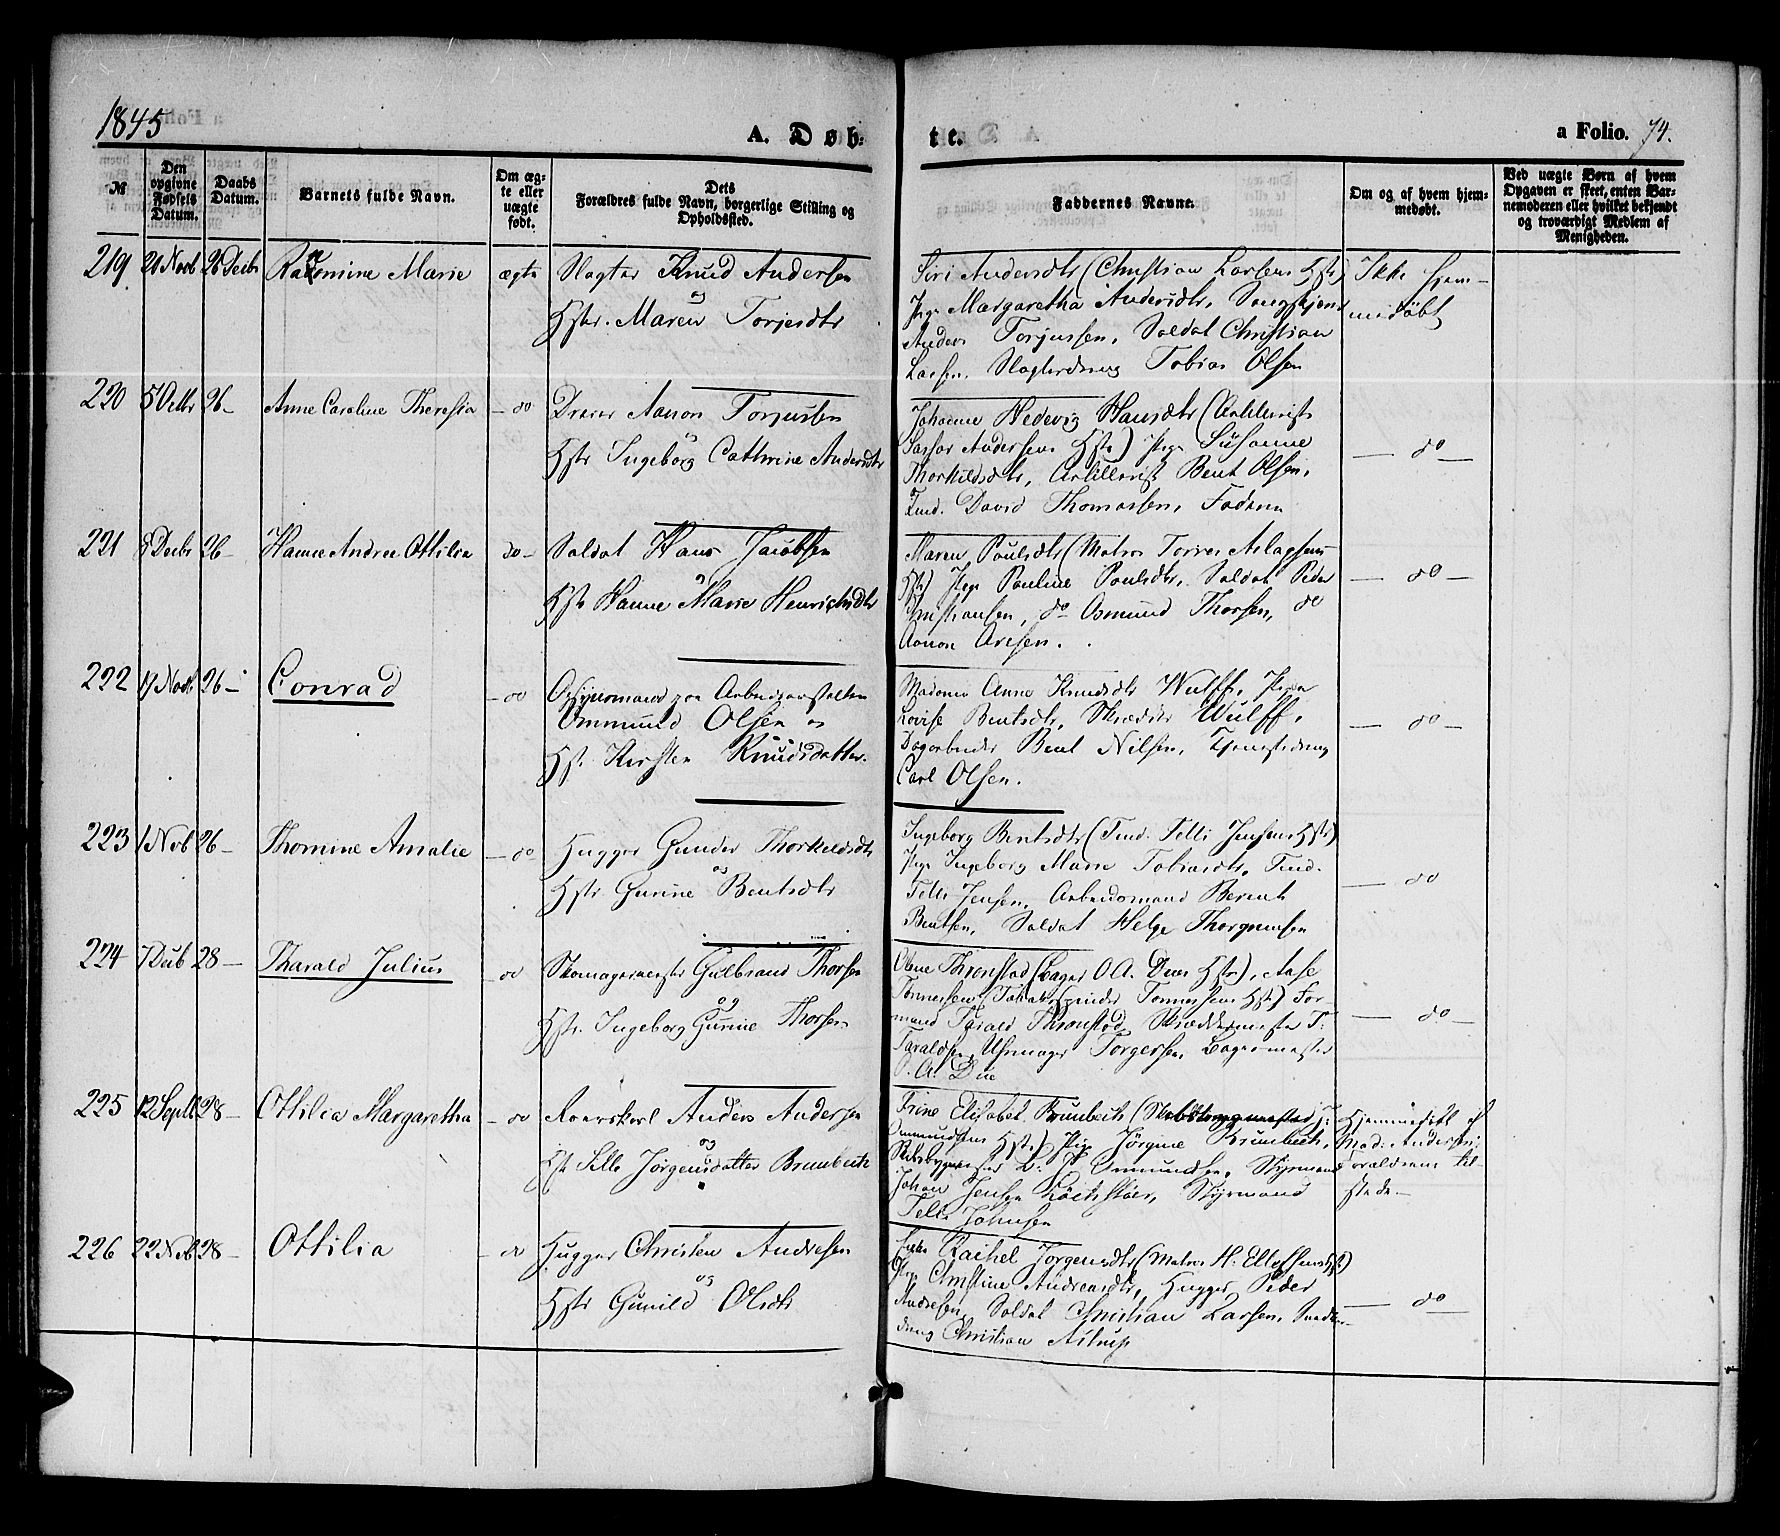 1845
A. Døb-
te.
a Folio. 74.
№
Den opgivne Fødsels Datum.
Daabs Datum.
Barnets fulde Navn.
Om ægte eller uægte født.
Dets Forældres fulde Navn, borgerlige Stilling og Opholdssted.
Faddernes Navne.
Om og af hvem hjemmedøbt.
Ved uægte Børn af hvem Opgaven er skeet, enten Barnemoderen eller hvilket bekjendt og troværdigt Medlem af Menigheden.
219 21 Novb 26 Decbr Marie ægte Slagter Knud Andersen
og
Hstr. Maren Torjersdtr
Siri Andersdtr (Christian Larsens Hstr)
Pige Margaretha Andersdtr,
Anders Torjussen, Soldat Christian
Larsen, Slagterdreng Tobias Olsen
Ikke hjem-
medöbt
220 26 - Anne Caroline Theresia - do Aanon Torjussen
og
Hstr Ingeborg Cathrine Andersdtr
Johanne Hedevig Hansdtr (Artillerist
Andersens Hstr) Pige Susanne
Thorkildsdtr, Artillerist Bent Olsen,
David Thomassen, Faderen
- do -
221 8 Decbr 26 - Hanne Andrea Ottilia do - Soldat Hans Jacobsen
og
Hstr Hanne Marie
Maren Poulsdtr (Matros Aslagsens
Hstr) Pige Pauline Poulsdtr, Soldat Peder
Christiansen, do Osmund Thorsen, do
Aanon Aresen.
- do -
222 17 Novb 26 - Conrad - do Opsynsmand paa Arbeidsanstalten
Ommund Olsen og
Hstr. Kirsten Knudsdatter.
Madame Anne Knudsdtr Wulff, Pigen
Lovise Bentsdtr, Skræder Wulff,
Dagarbeider Bent Nilsen, Tjenestedreng
Carl Olsen.
- do -
223 1 Novb 26 - Thomine Amalie - do Hugger Gunder Thorkildsdtr
og
Hstr Gurine Bentsdtr
Ingeborg Bentsdtr (Tellef Jensens Hstr)
Pige Ingeborg Marie Tobiasdtr,
Tellef Jensen, Arbeidsmand Berent
Bentsen, Soldat Helge Thorgrimsen
- do -
224 28 - Tharald Julius do Skomagermester Gulbrand Thorsen
og
Hstr. Ingeborg Gurine Thorsen
Olene Thronstad (Bager O. A. Dues Hstr), Aase
Tønnessen Tønnessens Hstr) For-
mand Tarald Thronstad, Skræddermester T.
Taraldsen, Uhrmager Torgersen, Bagermester
O. A. Due
- do -
225 12 Septb 28 - Ottilia Margaretha - do Anders Andersen
og
Hstr Sille Jörgensdatter Brunbech
Trine Elisabet Brunbech
Ommundsens Hstr) Pige Jörgine Brunbech,
Skibsbygmester Ommundsen, Styrmand
Johan Jensen Styrmand
Tellef Johnsen
Hjemmedöbt af
Mad. Andersen;
Forældrene til-
stede -
226 22 Novb 28 - Ottilia - do Hugger Christen Andresen
og
Hstr Gunild Olsdtr
Rachel Jörgensdtr (Matros H. Ellefsens Hstr)
Pige Christine Andreasdtr, Hugger Peder
Andresen, Soldat Christian Larsen,
dreng Christian Astrup
- do -